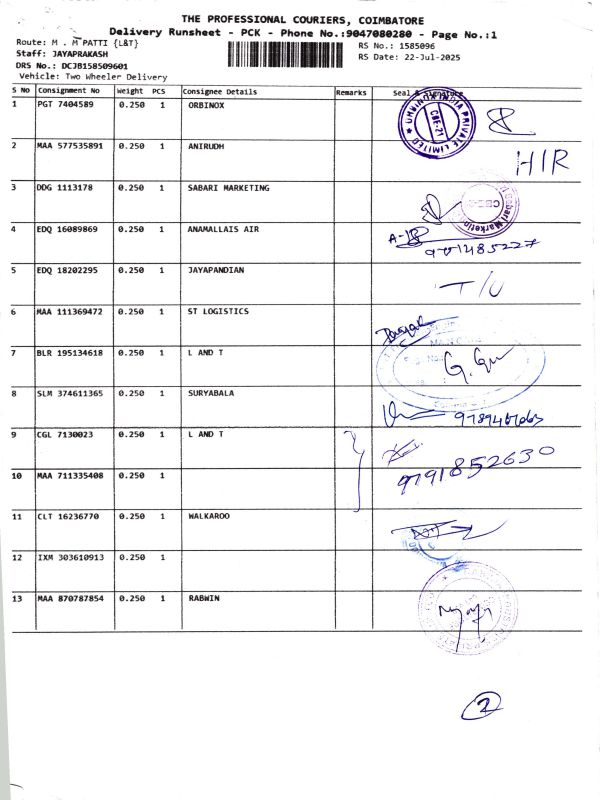 THE PROFESSIONAL COURIERS, COIMBATORE
Delivery Runsheet - PCK - Phone No.:9047080280 - Page No.:1
Route: M . M PATTI {L&T}
RS No.: 1585096
Staff: JAYAPRAKASH
RS Date: 22-Jul-2025
DRS No.: DCJB158509601
Vehicle: Two Wheeler Delivery
S No Consignment No Weight PCS Consignee Details Remarks Seal & Signature
1 PGT 7404589 0.250 1 ORBINOX
ORBINOX INDIA PRIVATE LIMITED CBE-21
2 MAA 577535891 0.250 1 ANIRUDH
H/R
3 DDG 1113178 0.250 1 SABARI MARKETING
Sabari Marketing
4 EDQ 16089869 0.250 1 ANAMALLAIS AIR
5 EDQ 18202295 0.250 1 JAYAPANDIAN
T/U
6 MAA 111369472 0.250 1 ST LOGISTICS
7 BLR 195134618 0.250 1 L AND T
8 SLM 374611365 0.250 1 SURYABALA
9 CGL 7130023 0.250 1 L AND T
9791852630
10 MAA 711335408 0.250 1
11 CLT 16236770 0.250 1 WALKAROO
12 IXM 303610913 0.250 1
13 MAA 870787854 0.250 1 RABWIN
2